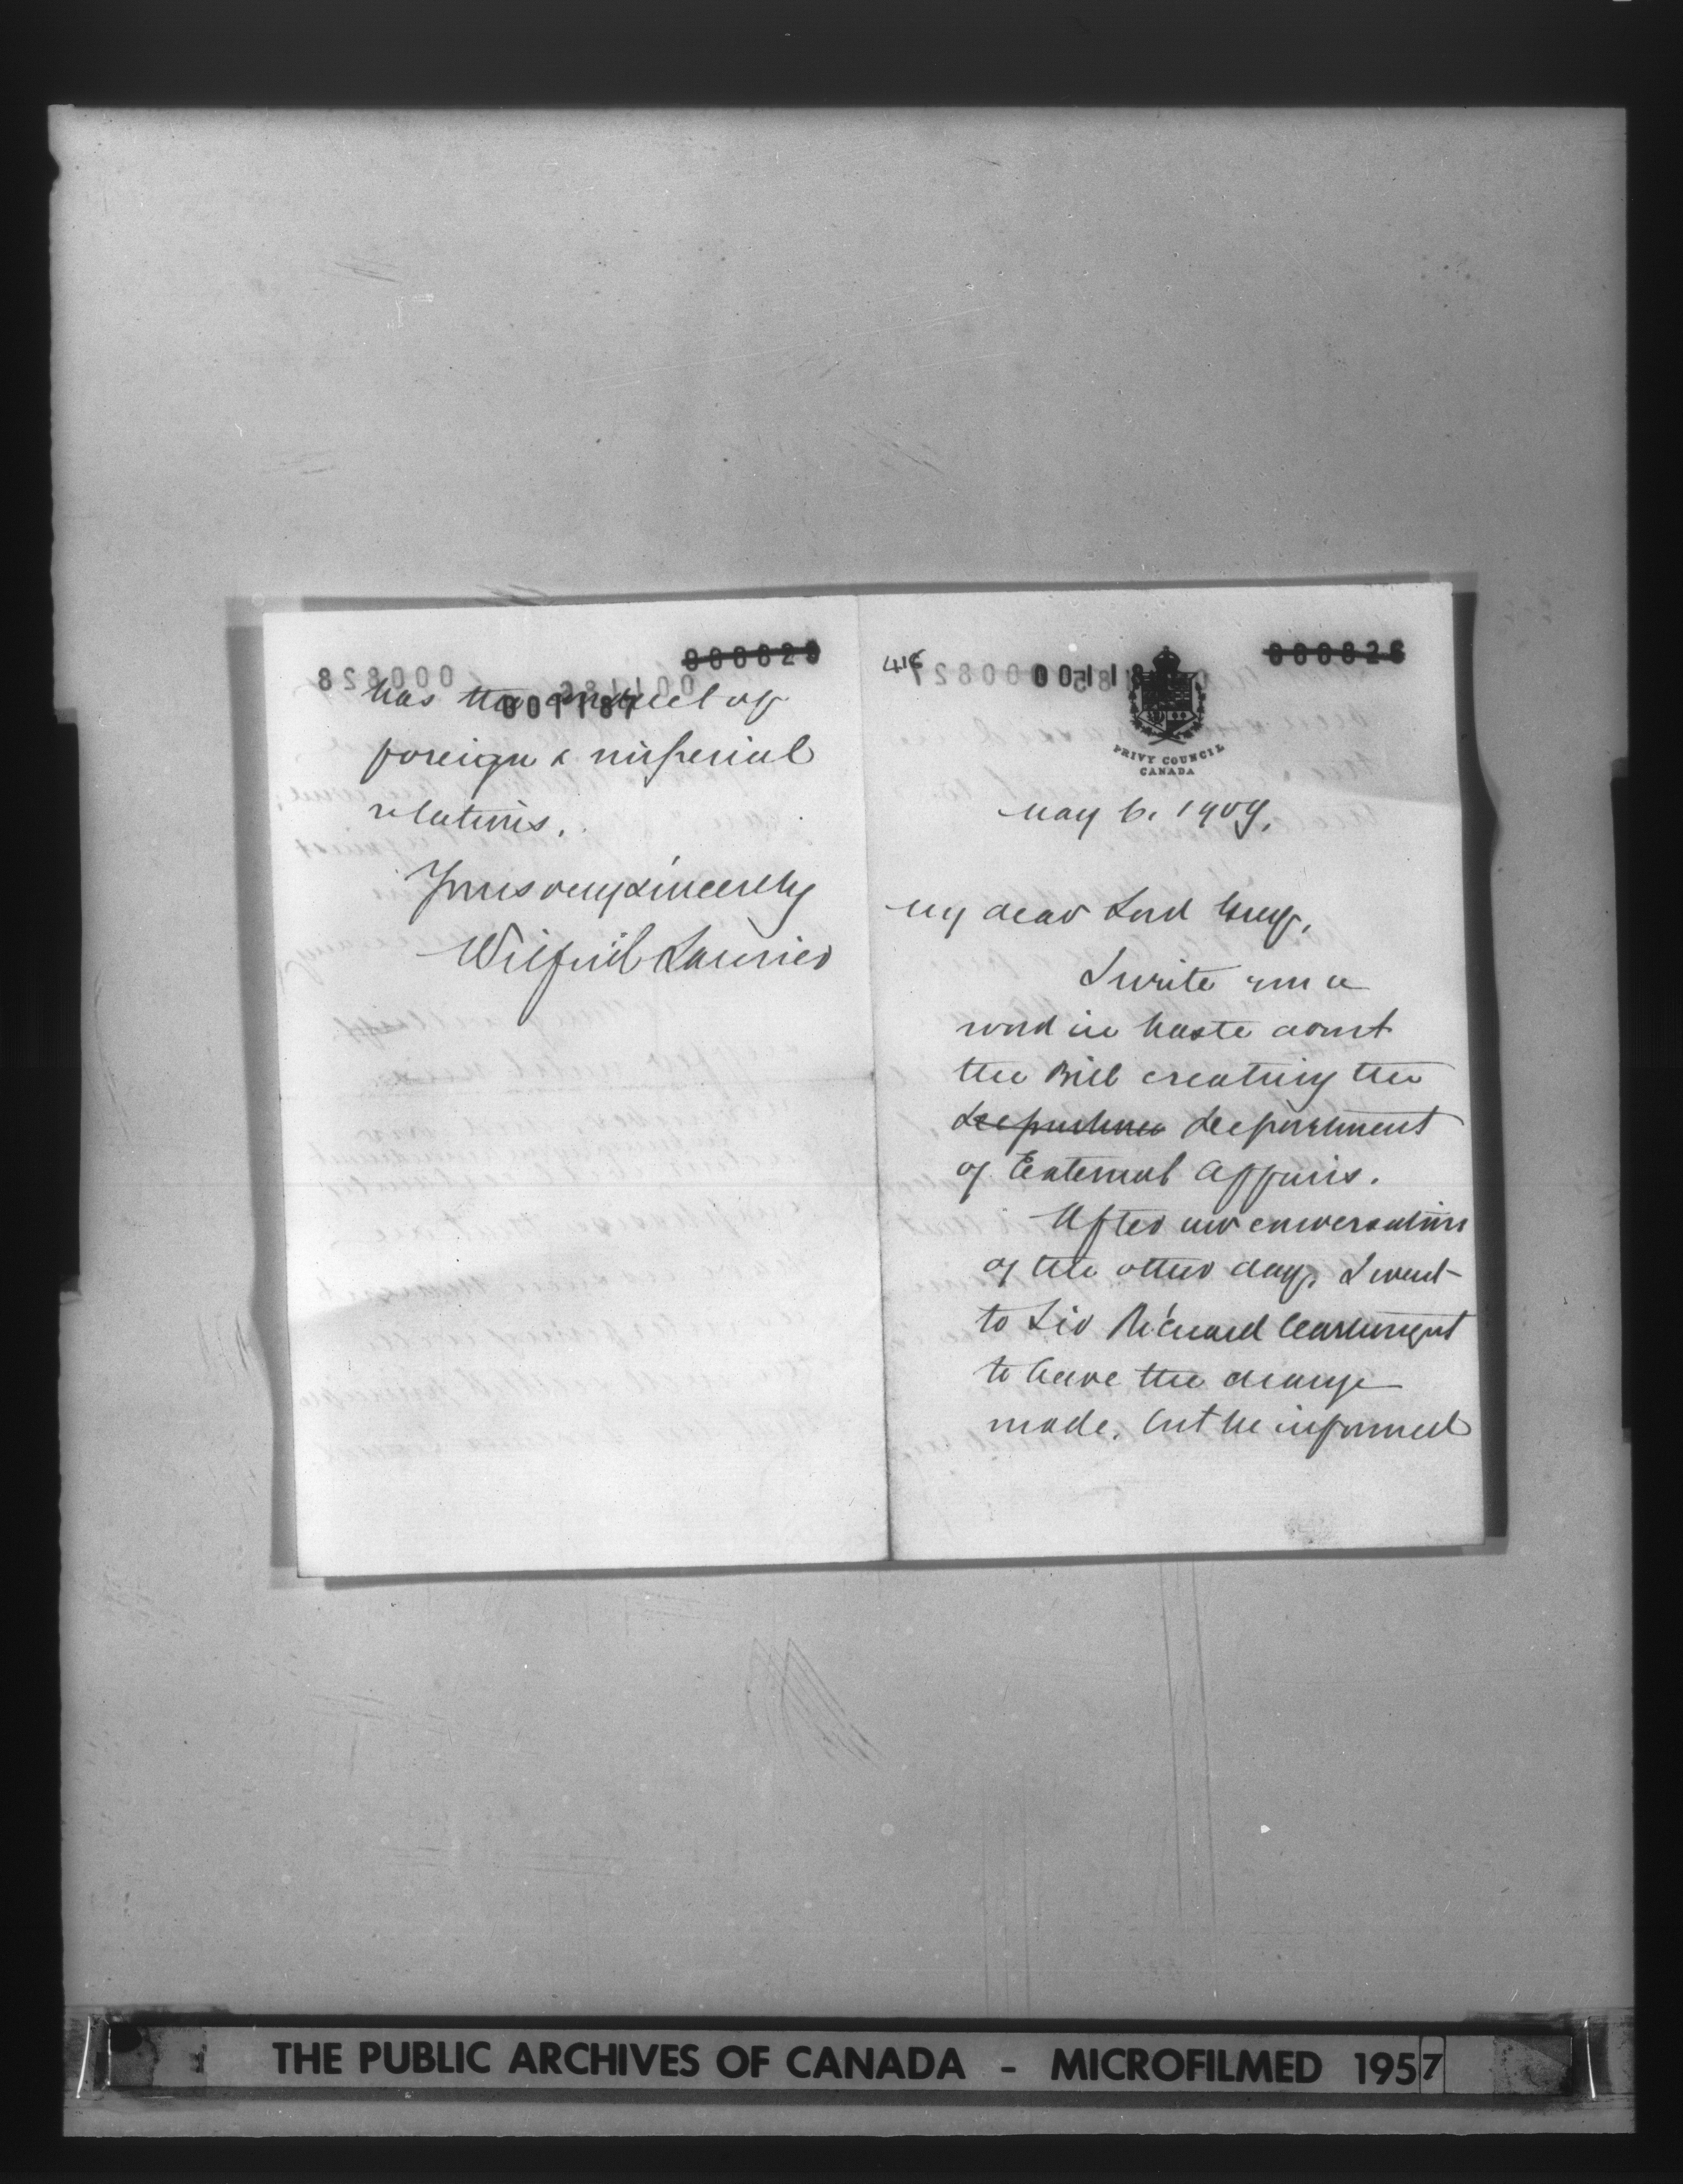 000829
has the conduct of
001187
foreign & imperial
relations.
Yours very sincerely
Wilfrid Laurier
416
000826
PRIVY COUNCIL
CANADA
May 6. 1909.
My dear Lord Grey,
I write you a
word in haste about
the Bill creating the
Department
of External Affairs.
After our conversation
of the other day, I went
to Sir Richard Cartwright
to have the change
made, but he informed
THE PUBLIC ARCHIVES OF CANADA - MICROFILMED 1957